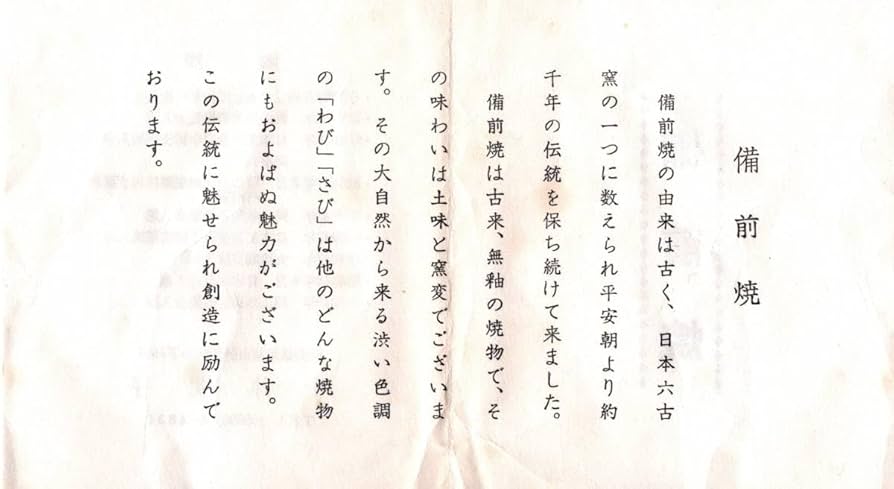 備前焼
備前焼の由来は古く、日本六古
窯の一つに数えられ平安朝より約
千年の伝統を保ち続けて来ました。
備前焼は古来、無釉の焼物で、そ
の味わいは土味と窯変でございま
す。その大自然から来る渋い色調
の「わび」「さび」は他のどんな焼物
にもおよばぬ魅力がございます。
この伝統に魅せられ創造に励んで
おります。